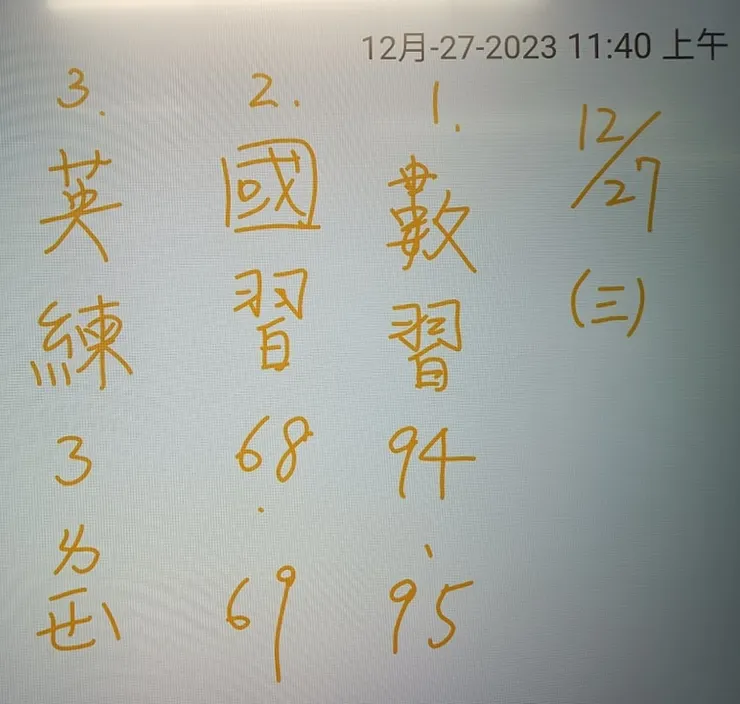 12月-27-2023 11:40 上午
12/27(三)
1.數習94、95
2.國習68.69
3.英練3